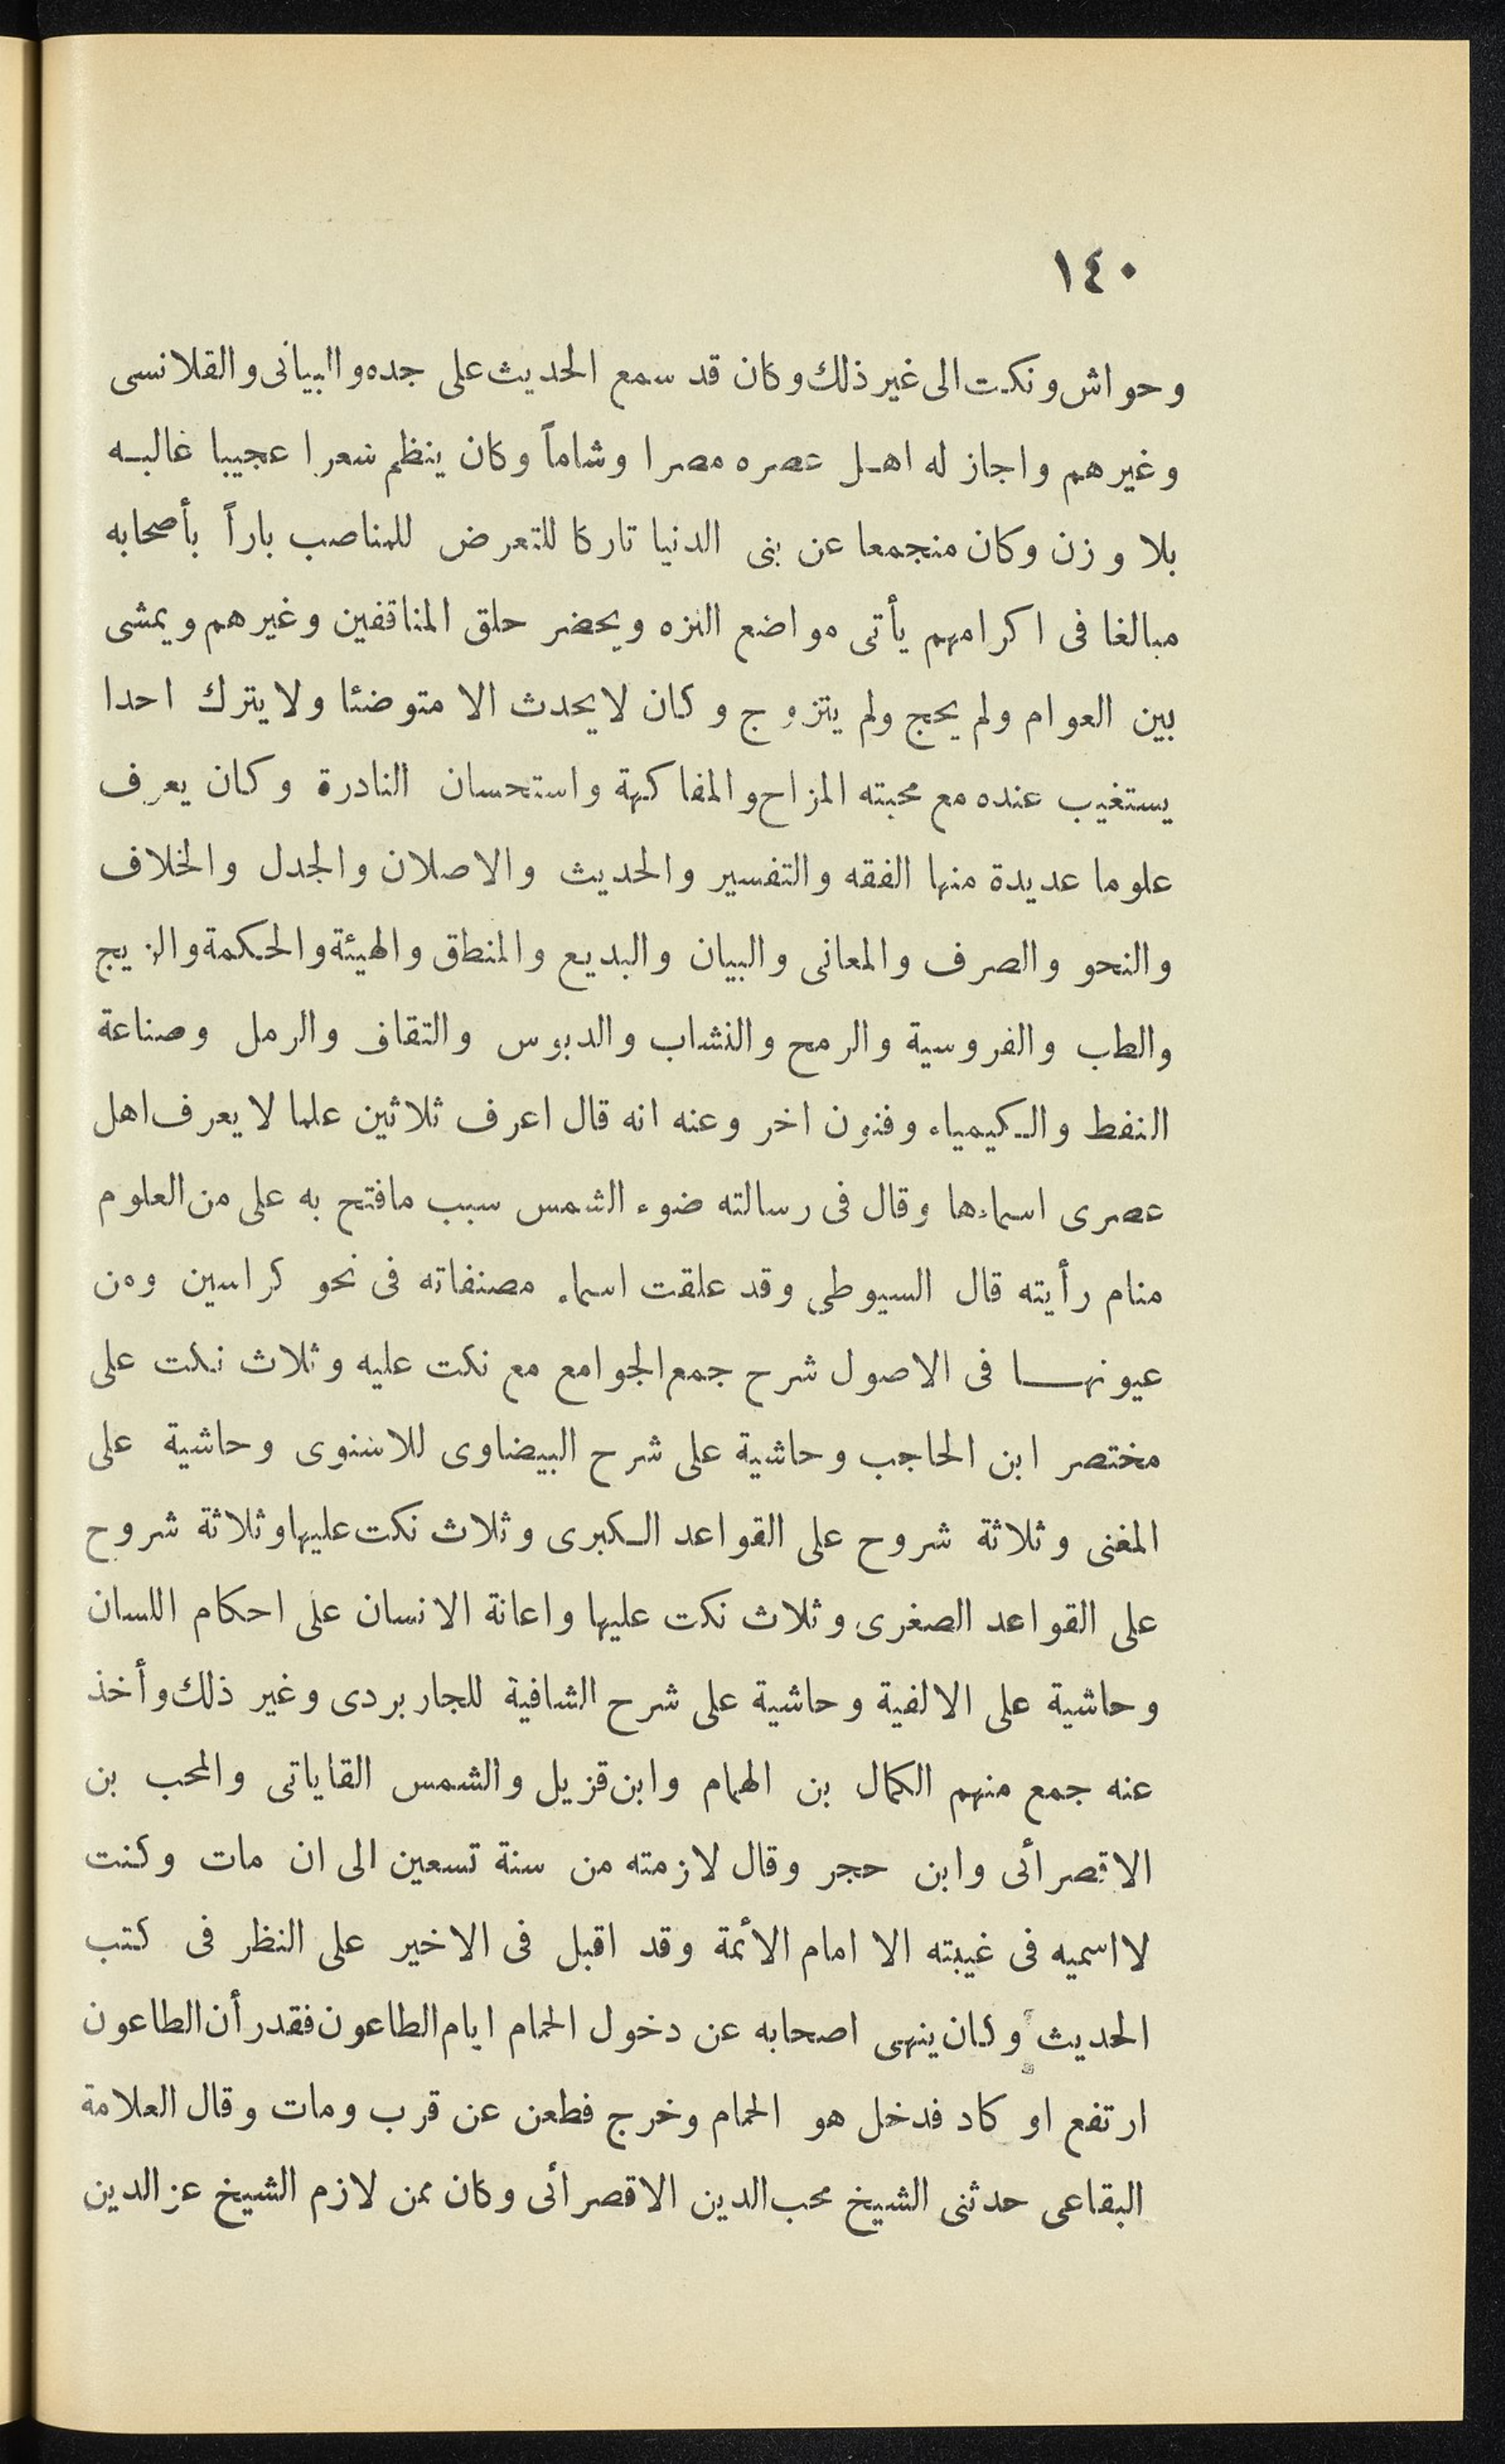 ١٤٠
وحواش ونكت الى غير ذلك وكان قد سمع الحديث على جده والبيانى والقلانسى
وغيرهم واجاز له اهل عصره مصرا وشاماً وكان ينظم شعرا عجيبا غالبه
بلا وزن وكان منجمعا عن بنى الدنيا تاركا للتعرض للمناصب باراً بأصحابه
مبالغا فى اكرامهم يأتى مواضع النزه ويحضر حلق المناقفين وغيرهم ويمشى
بين العوام ولم يحج ولم يتزوج وكان لا يحدث الا متوضئا ولا يترك احدا
يستغيب عنده مع محبته المزاح والمفاكهة واستحسان النادرة وكان يعرف
علوما عديدة منها الفقه والتفسير والحديث والاصلان والجدل والخلاف
والنحو والصرف والمعانى والبيان والبديع والمنطق والهيئة والحكمة والزيج
والطب والفروسية والرمح والنشاب والدبوس والتقاف والرمل وصناعة
النفط والكيمياء وفنون اخر وعنه انه قال اعرف ثلاثين علما لا يعرف اهل
عصرى اسماءها وقال فى رسالته ضوء الشمس سبب مافتح به على من العلوم
منام رأيته قال السيوطى وقد علقت اسماء مصنفاته فى نحو كراسين ومن
عيونها فى الاصول شرح جمع الجوامع مع نكت عليه وثلاث نكت على
مختصر ابن الحاجب وحاشية على شرح البيضاوى للاسنوى وحاشية على
المغنى وثلاثة شروح على القواعد الكبرى وثلاث نكت عليها وثلاثة شروح
على القواعد الصغرى وثلاث نكت عليها واعانة الانسان على احكام اللسان
وحاشية على الالفية وحاشية على شرح الشافية للجاربردى وغير ذلك وأخذ
عنه جمع منهم الكمال بن الهمام وابن قزيل والشمس القاياتى والمحب بن
الاقصرأئى وابن حجر وقال لازمته من سنة تسعين الى ان مات وكنت
لا اسميه فى غيبته الا امام الأئمة وقد اقبل فى الاخير على النظر فى كتب
الحديث وكان ينهى اصحابه عن دخول الحمام ايام الطاعون فقدر أن الطاعون
ارتفع او كاد فدخل هو الحمام وخرج فطعن عن قرب ومات وقال العلامة
البقاعى حدثنى الشيخ محب الدين الاقصرأئى وكان ممن لازم الشيخ عز الدين